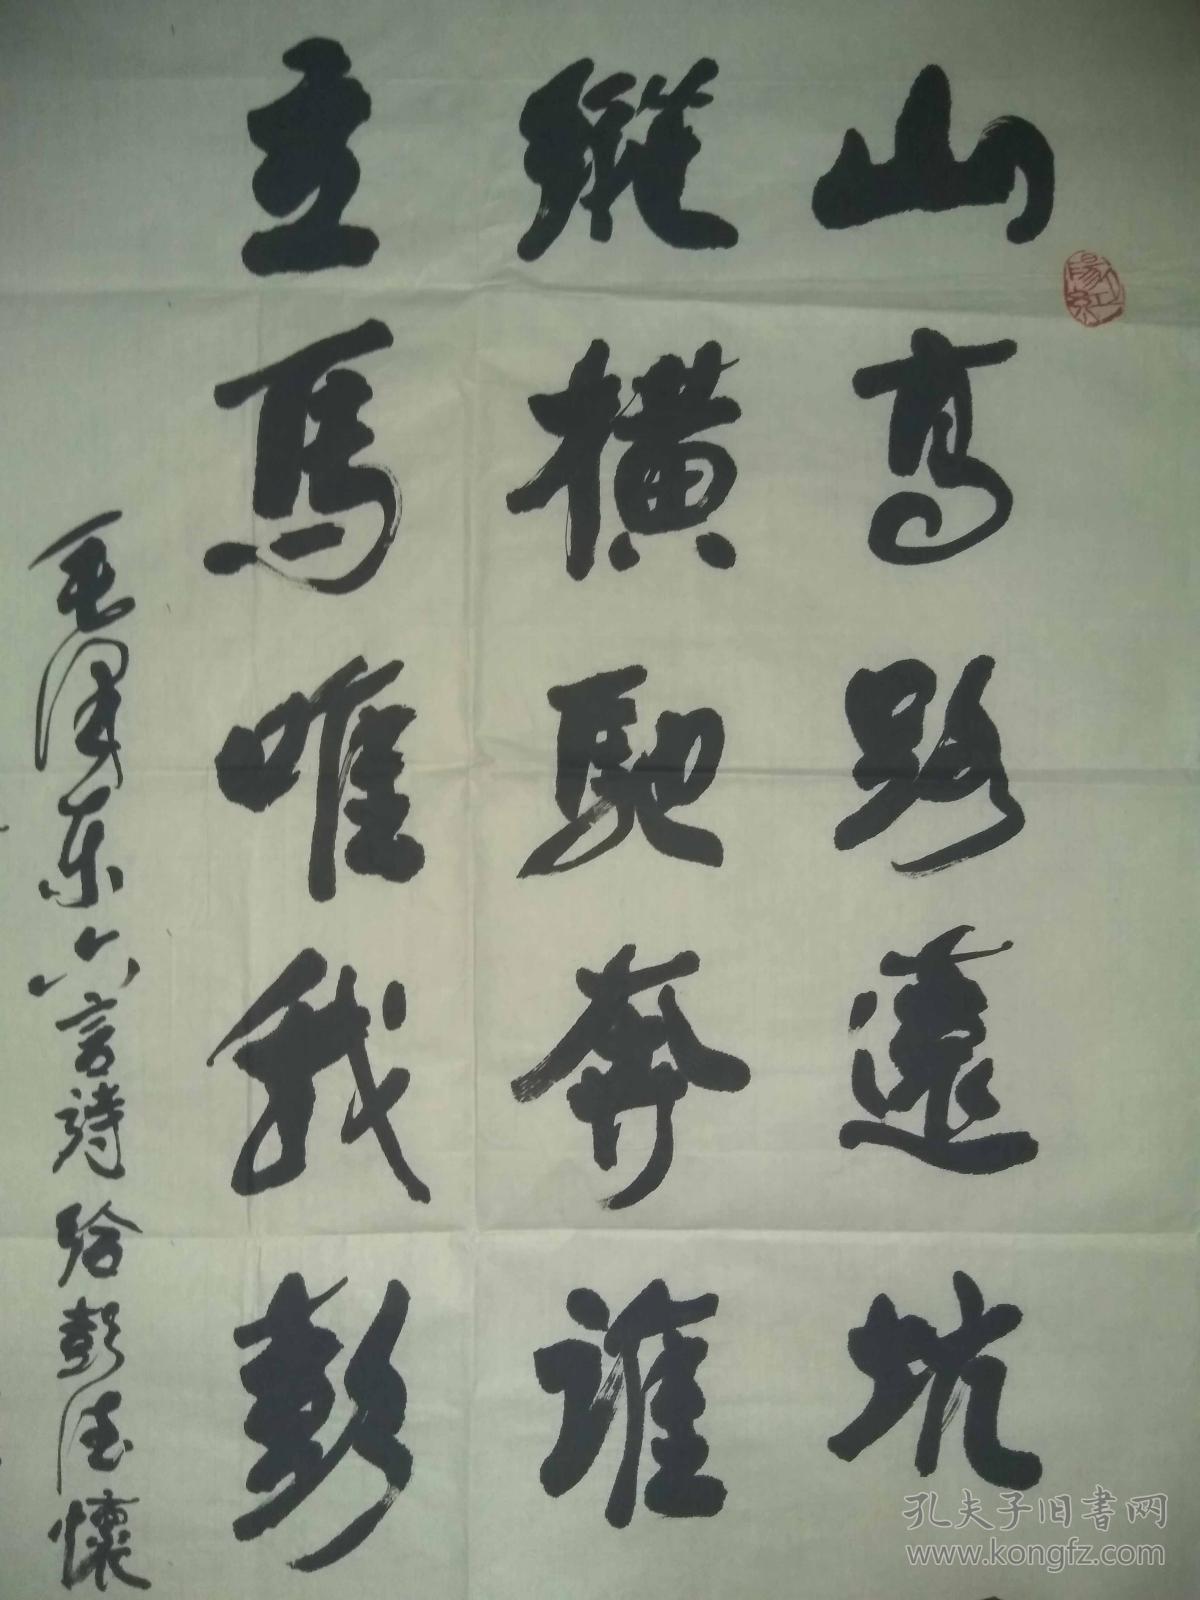 山高路遠坑
縱橫馳奔誰
立馬唯我彭
毛澤东六言詩給彭德懷
孔夫子旧书网
www.kongfz.com